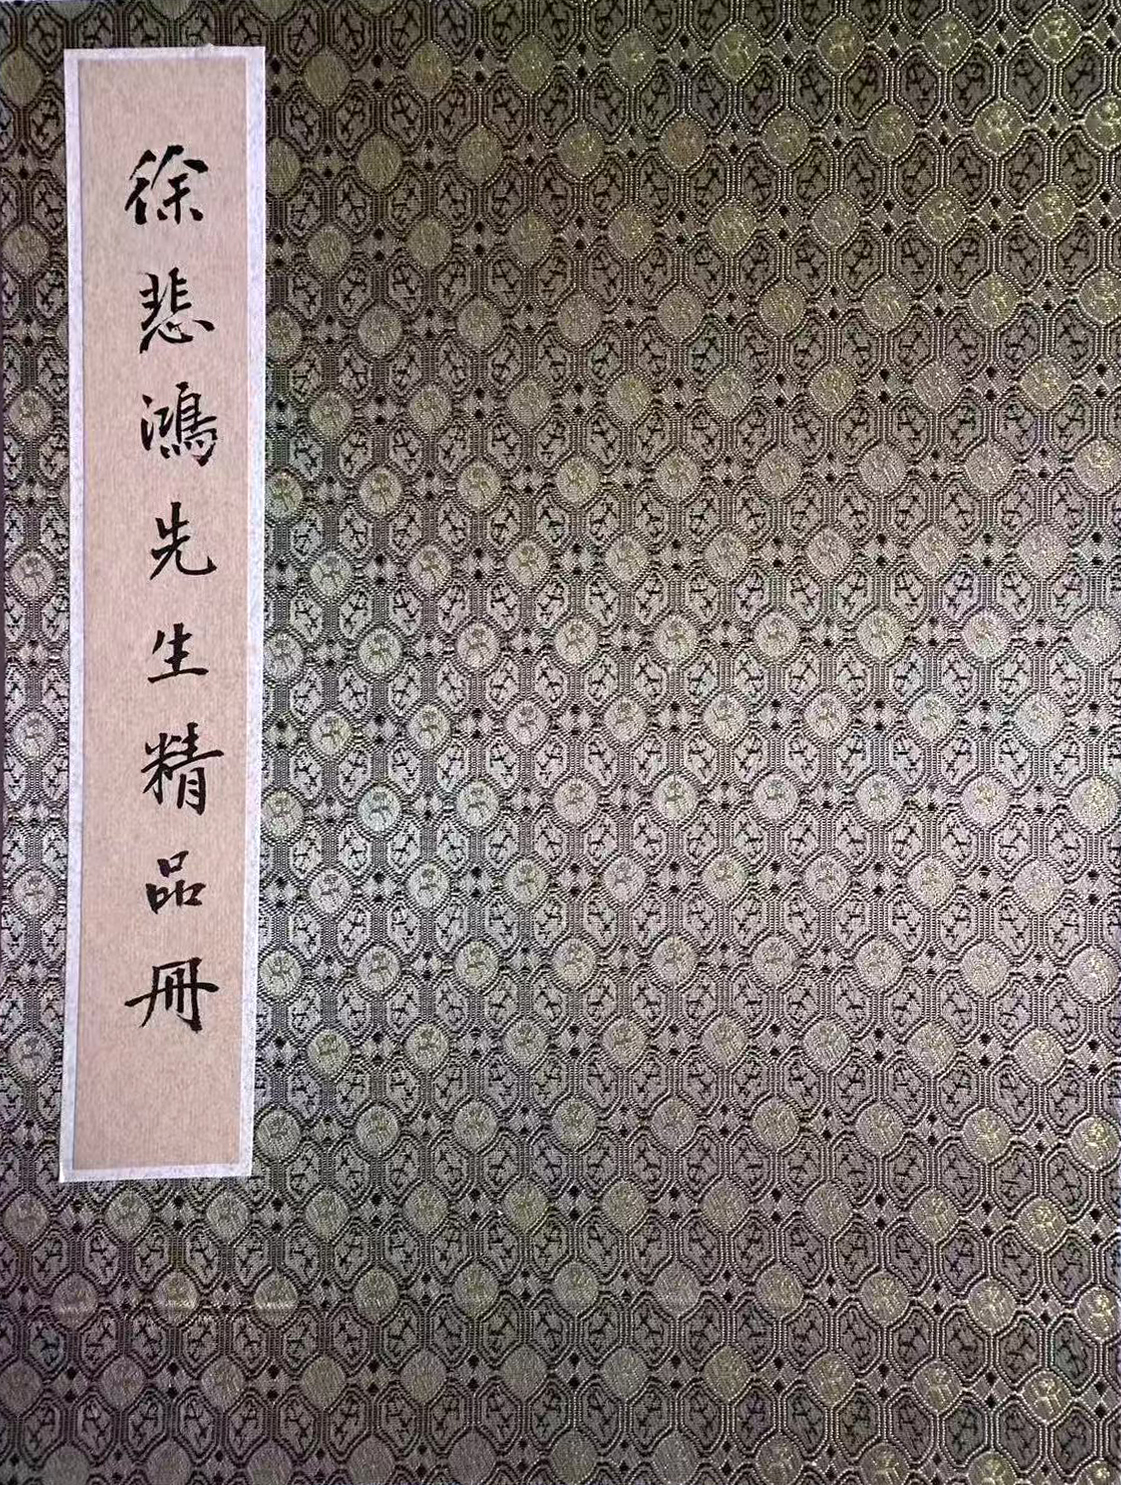 徐悲鴻先生精品冊